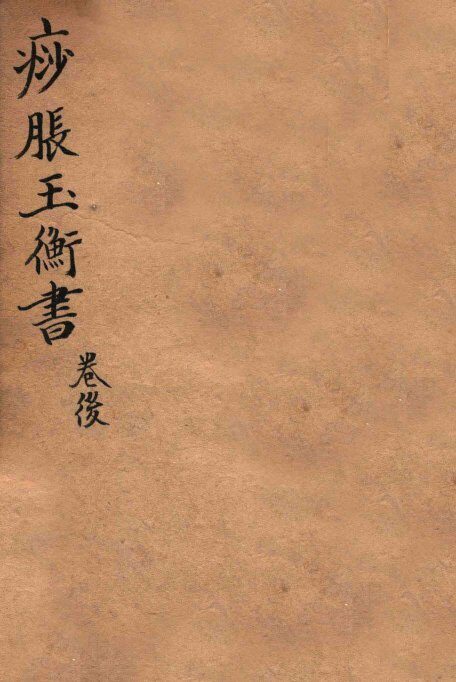 痧脹玉衡書
卷後